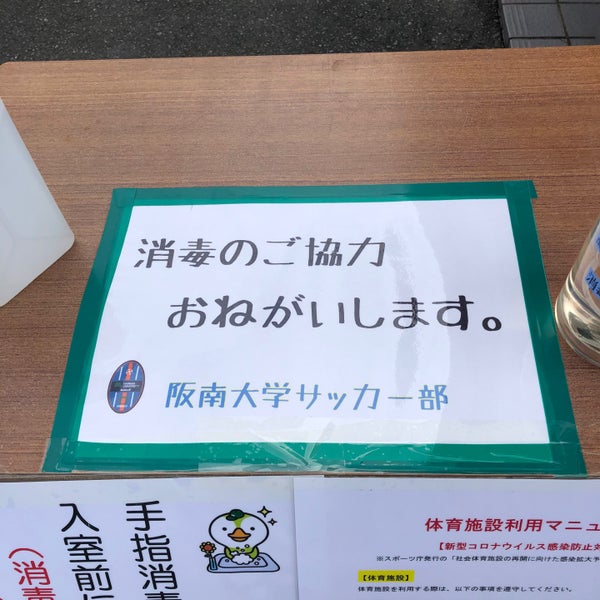 消毒のご協力
おねがいします。
阪南大学サッカー部
手指消毒
入室前に
(消毒
体育施設利用マニュ
【新型コロナウイルス感染防止対
※スポーツ庁発行の「社会体育施設の再開に向けた感染拡大予
【体育施設】
体育施設を利用する際は、以下の事項を遵守してください。